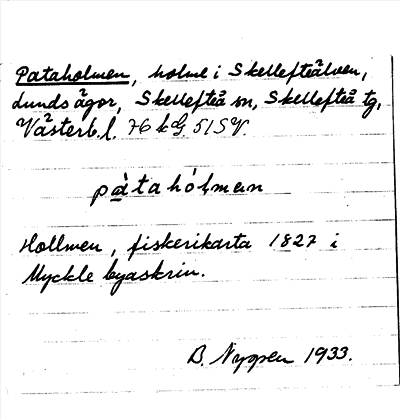 Pataholmen, holme i Skellefteälven,
Lunds ägor, Skellefteå sn, Skellefteå tg,
Västerb. l. 76 k G. 51 S V.
pàtahólmen
Hollmen, fiskerikarta 1827 i
Myckle byaskrin.
B. Nygren 1933.